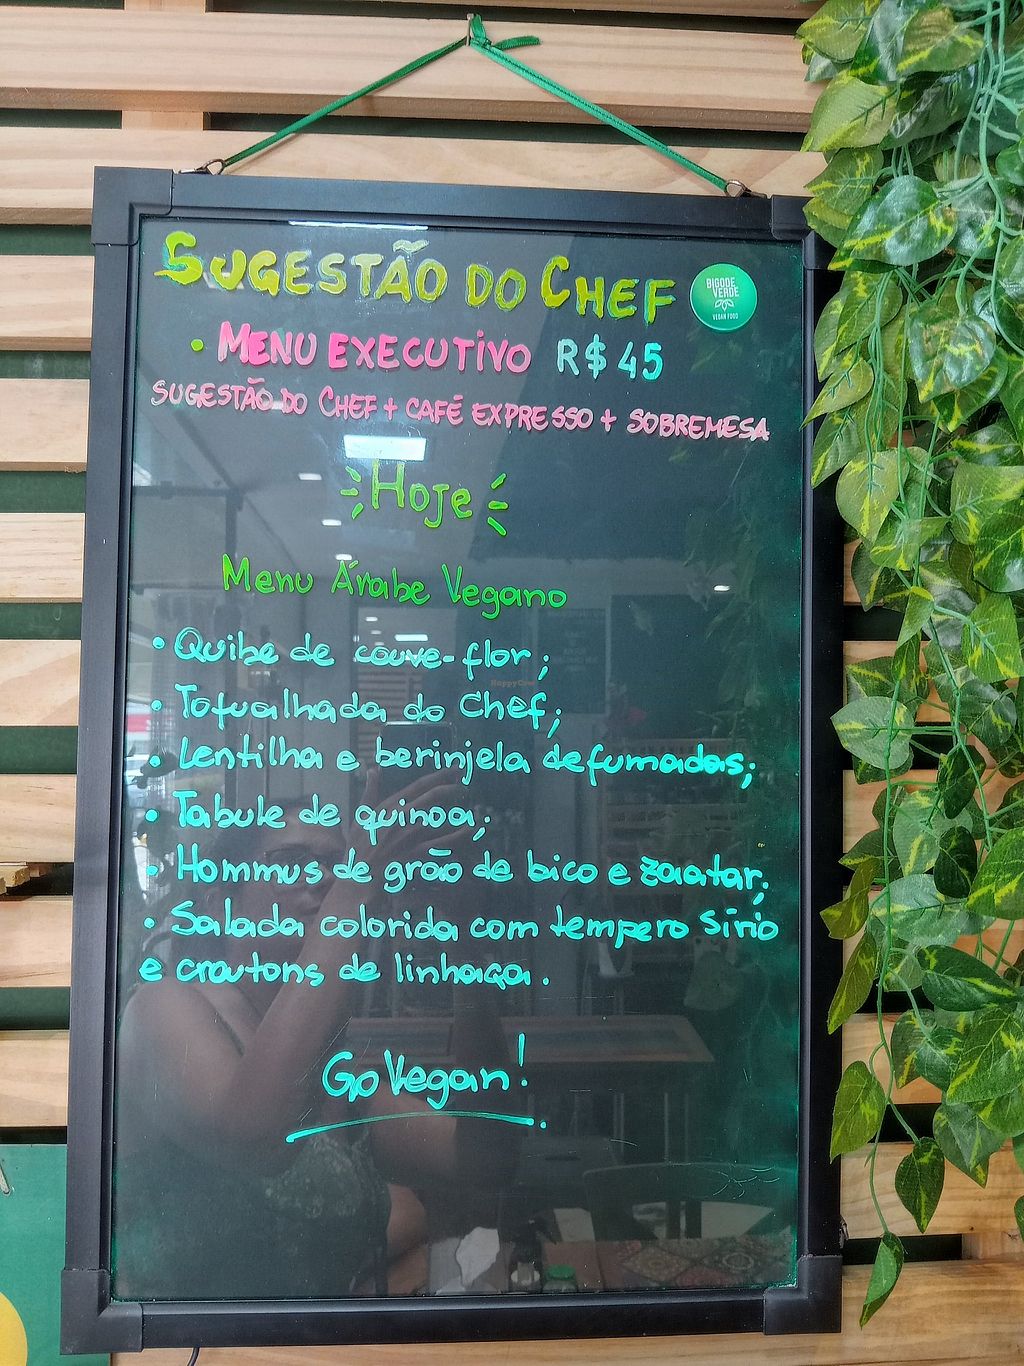 SUGESTÃO DO CHEF
BIGODE
VERDE
VEGAN FOOD
• MENU EXECUTIVO R$ 45
SUGESTÃO DO CHEF + CAFÉ EXPRESSO + SOBREMESA
Hoje
Menu Árabe Vegano
• Quibe de couve-flor;
• Tofualhada do Chef;
• Lentilha e berinjela defumadas;
• Tabule de quinoa;
• Hommus de grão de bico e zaatar;
• Salada colorida com tempero Sírio
e croutons de linhaça.
Go Vegan!
HappyCow